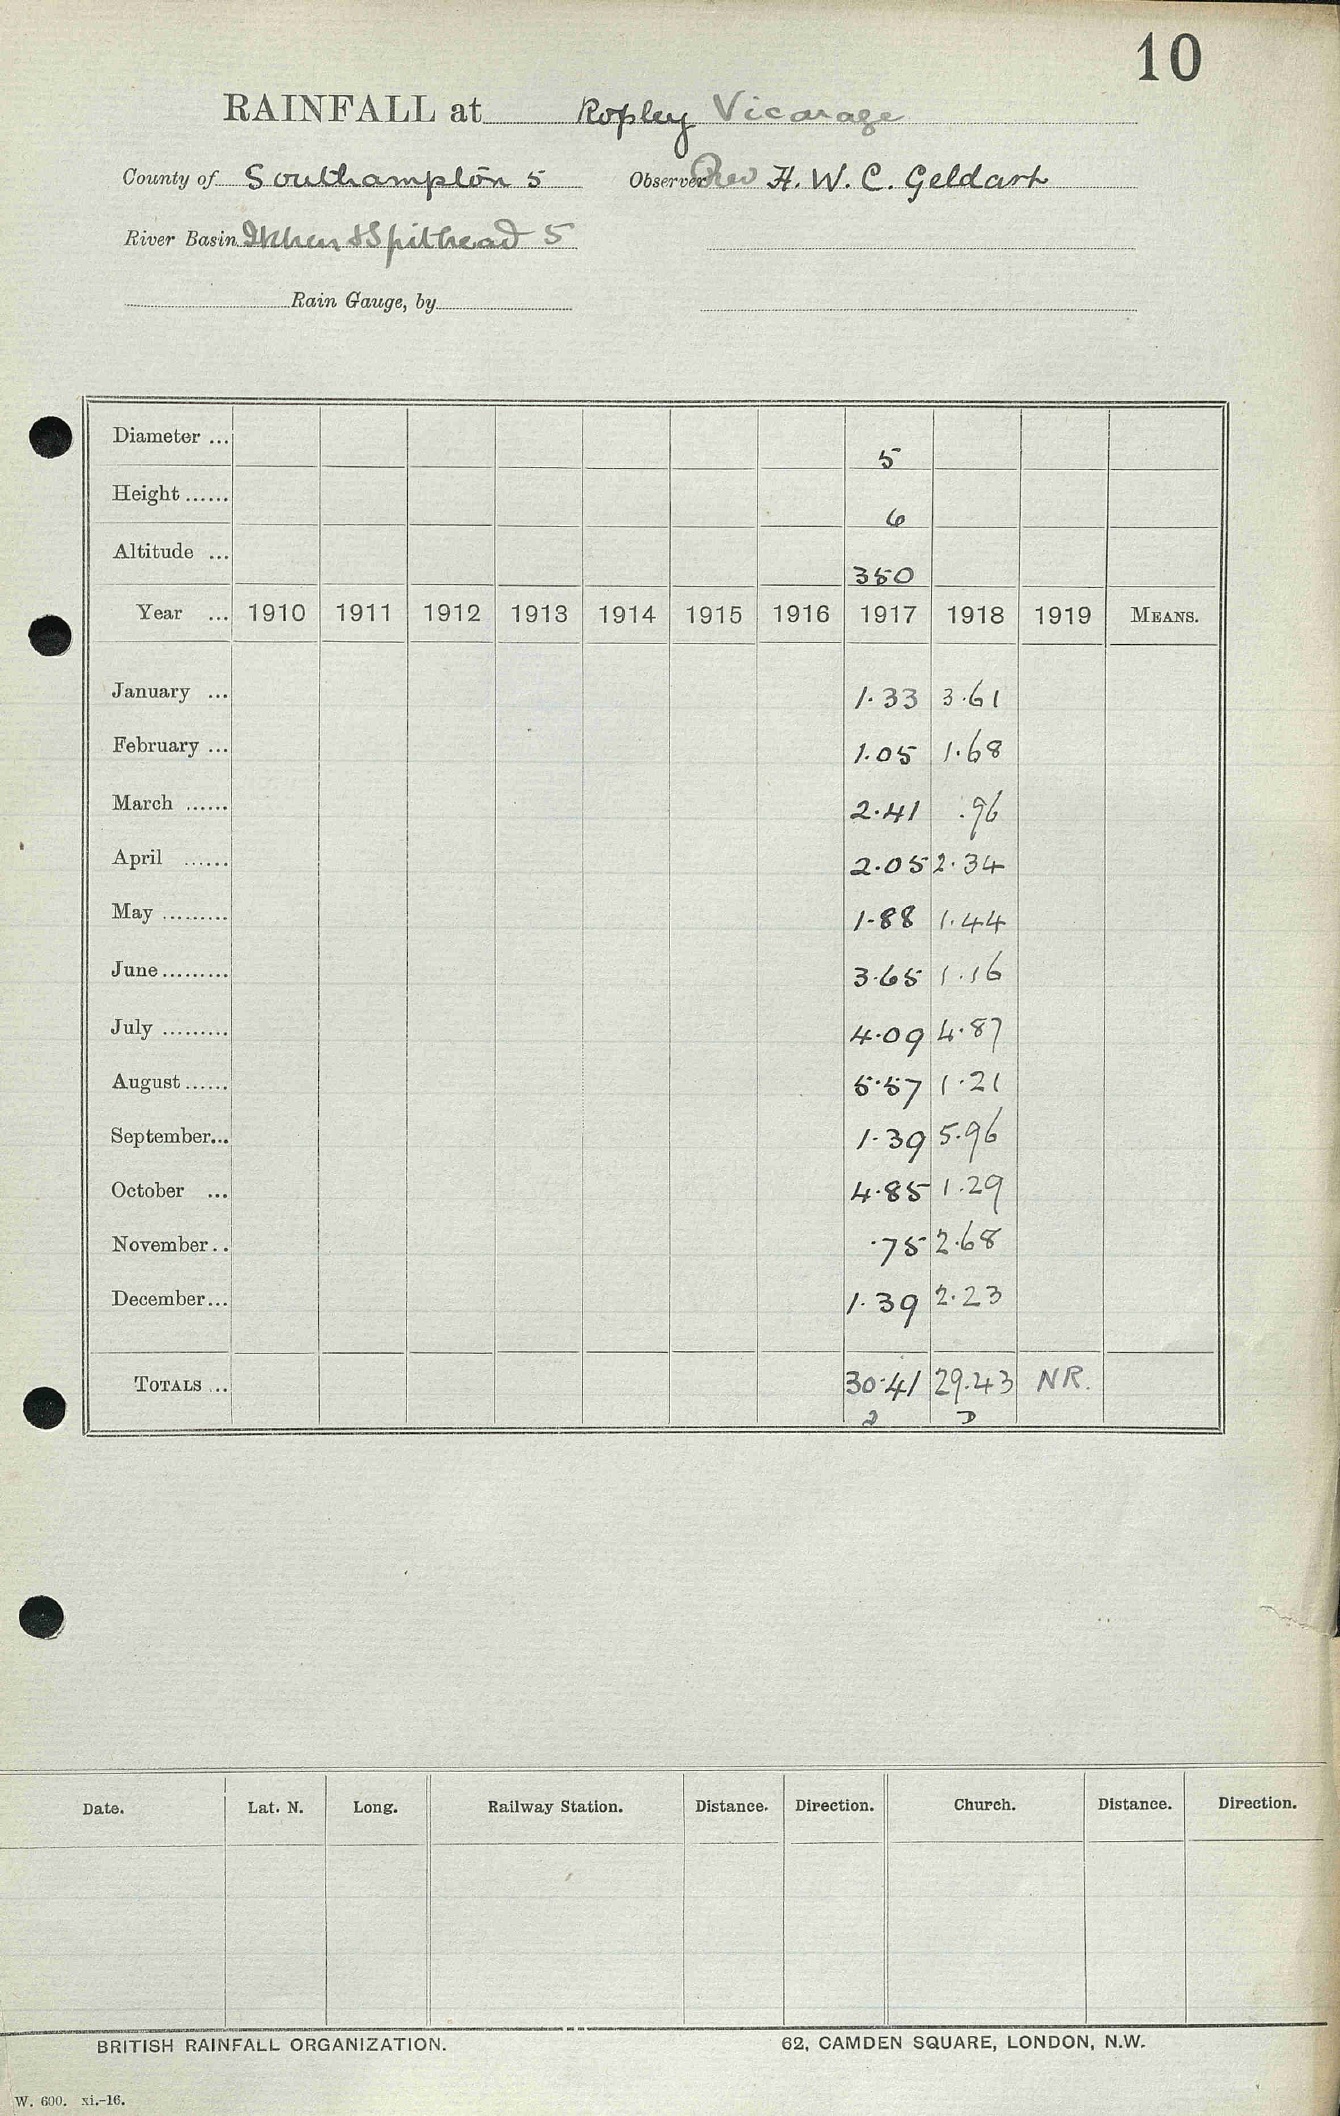 10
RAINFALL at Ropley Vicarage
County of Southampton 5 Observer Rev H. W. C. Geldart
River Basin Itchen & Spithead 5
Rain Gauge, by
Diameter ... 5
Height ...... 6
Altitude ... 350
Year ... 1910 1911 1912 1913 1914 1915 1916 1917 1918 1919 MEANS.
January ... 1.33 3.61
February ... 1.05 1.68
March ...... 2.41 .96
April ...... 2.05 2.34
May ......... 1.88 1.44
June ......... 3.65 1.16
July ......... 4.09 4.87
August ...... 5.57 1.21
September... 1.39 5.96
October ... 4.85 1.29
November.. .75 2.68
December... 1.39 2.23
TOTALS ... 30.41 29.43 NR.
D
Date. Lat. N. Long. Railway Station. Distance. Direction. Church. Distance. Direction.
BRITISH RAINFALL ORGANIZATION. 62, CAMDEN SQUARE, LONDON, N.W.
W. 600. xi.-16.